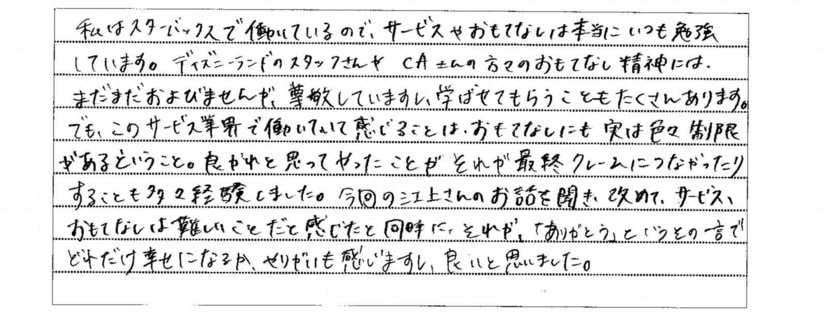 私はスターバックスで働いているので、サービスやおもてなしは本当にいつも勉強
しています。ディズニーランドのスタッフさんや CAさんの方々のおもてなし精神には、
まだまだおよびませんが、尊敬していますし、学ばせてもらうこともたくさんあります。
でも、このサービス業界で働いていて感じることは、おもてなしにも実は色々制限
があるということ。良かれと思ってやったことがそれが最終クレームにつながったり
することも多々経験しました。今回の江上さんのお話を聞き、改めて、サービス、
おもてなしは難しいことだと感じたと同時に、それが、「ありがとう」というその一言で
どれだけ幸せになるか、やりがいも感じますし、良いと思いました。